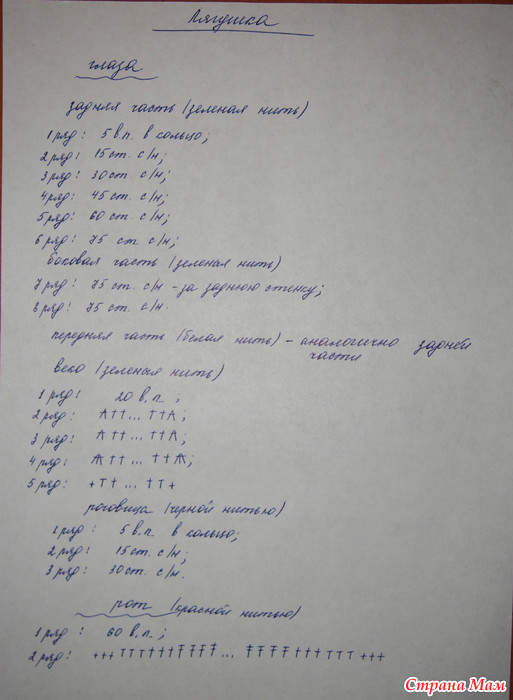 Лягушка
глаза
задняя часть (зеленая нить)
1 ряд: 5 в.п. в кольцо;
2 ряд: 15 ст. с/н;
3 ряд: 30 ст. с/н;
4 ряд: 45 ст. с/н;
5 ряд: 60 ст. с/н;
6 ряд: 75 ст. с/н;
боковая часть (зеленая нить)
7 ряд: 75 ст. с/н - за заднюю стенку;
8 ряд: 75 ст. с/н.
передняя часть (белая нить) - аналогично задней
части
веко (зеленая нить)
1 ряд: 20 в.п.;
2 ряд:
3 ряд:
4 ряд:
5 ряд:
роговица (черной нитью)
1 ряд: 5 в.п. в кольцо;
2 ряд: 15 ст. с/н;
3 ряд: 30 ст. с/н.
рот (красной нитью)
1 ряд: 60 в.п.;
2 ряд:
Страна Мам